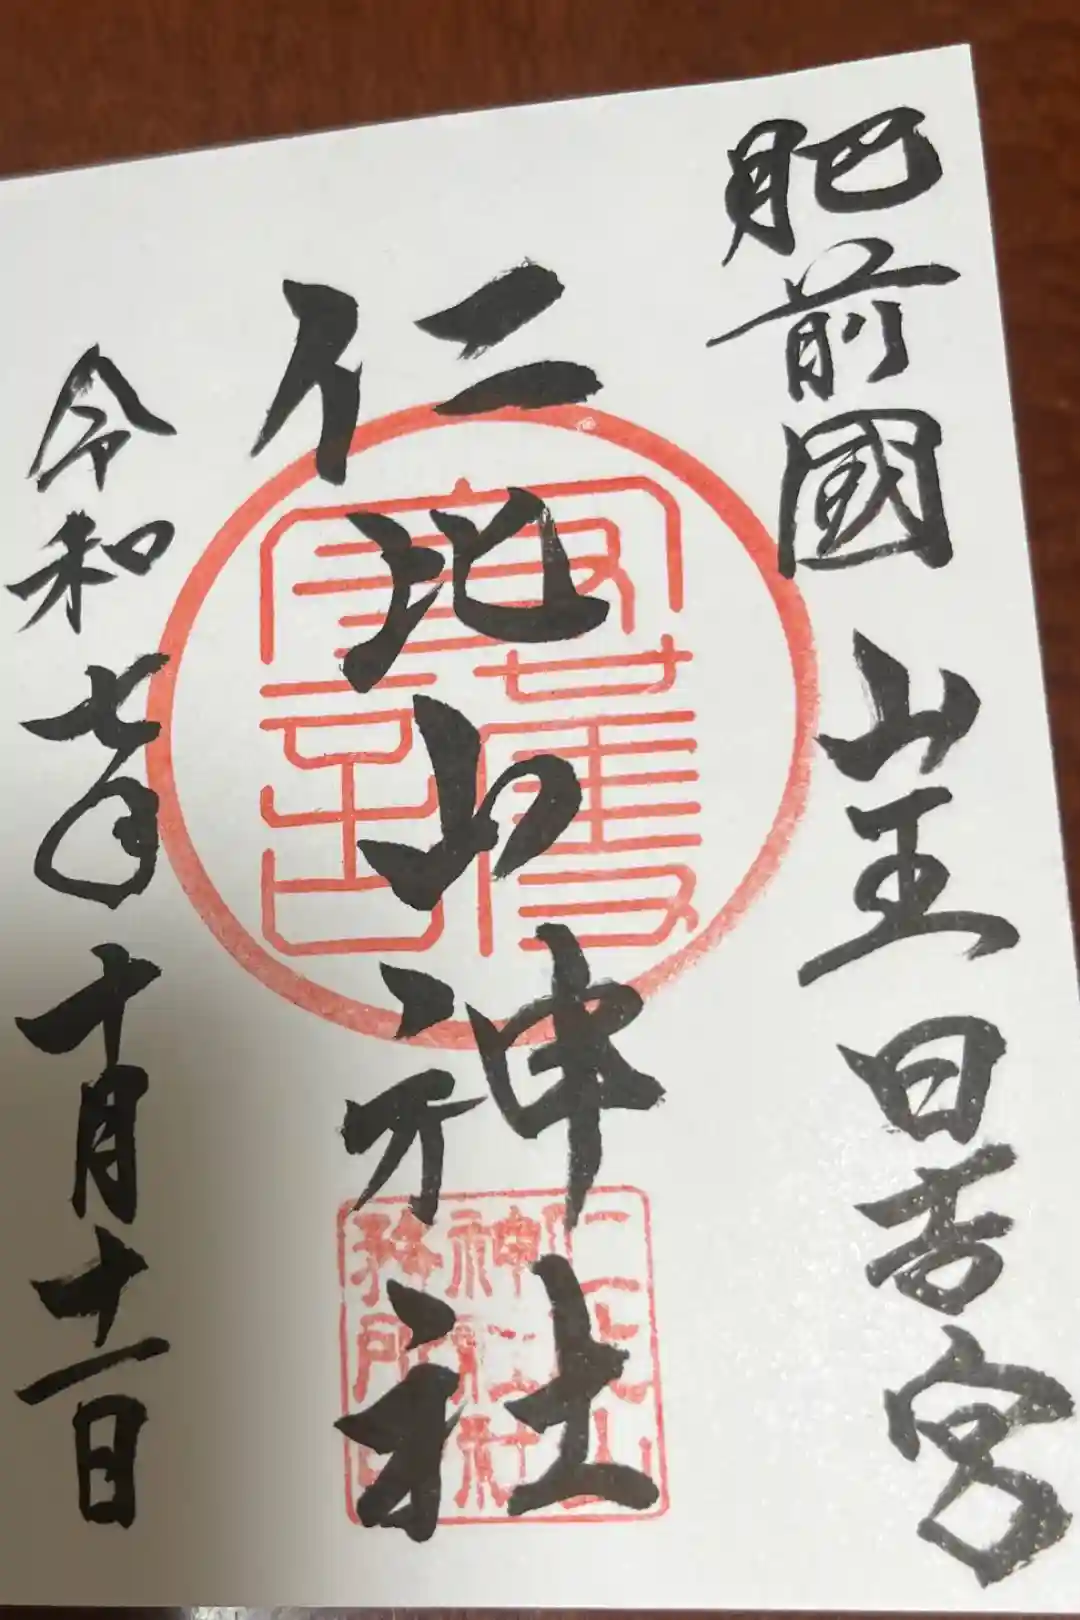 肥前國 山王日吉宮
仁比山神社
令和七年十月十一日
仁比山
神社社
務所印